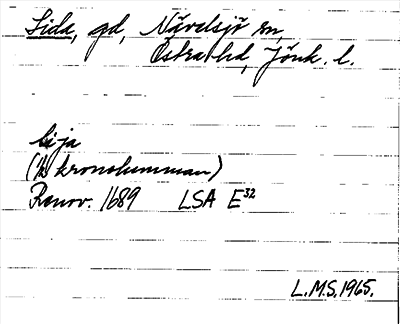 Lida, gd, Nävelsjö sn,
Östra hd, Jönk. l.
Lija
(½ kronohemman)
Renov. 1689 LSA E³²
L.M.S. 1965.